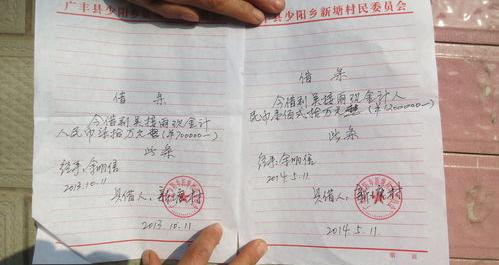 广丰县少阳乡新塘村民委员会
借条
今借到吴接雨现金计
人民币柒拾万元整(￥700000一)
此条
经手:余明信
2013.10.11
具借人:新塘村
2013.10.11
丰县少阳乡新塘村民委员会
借条
今借到吴接雨现金计人
民币壹佰贰拾万元整(￥1200000一)
此条
经手:余明信
2014.5.11.
具借人:新塘村
2014.5.11.